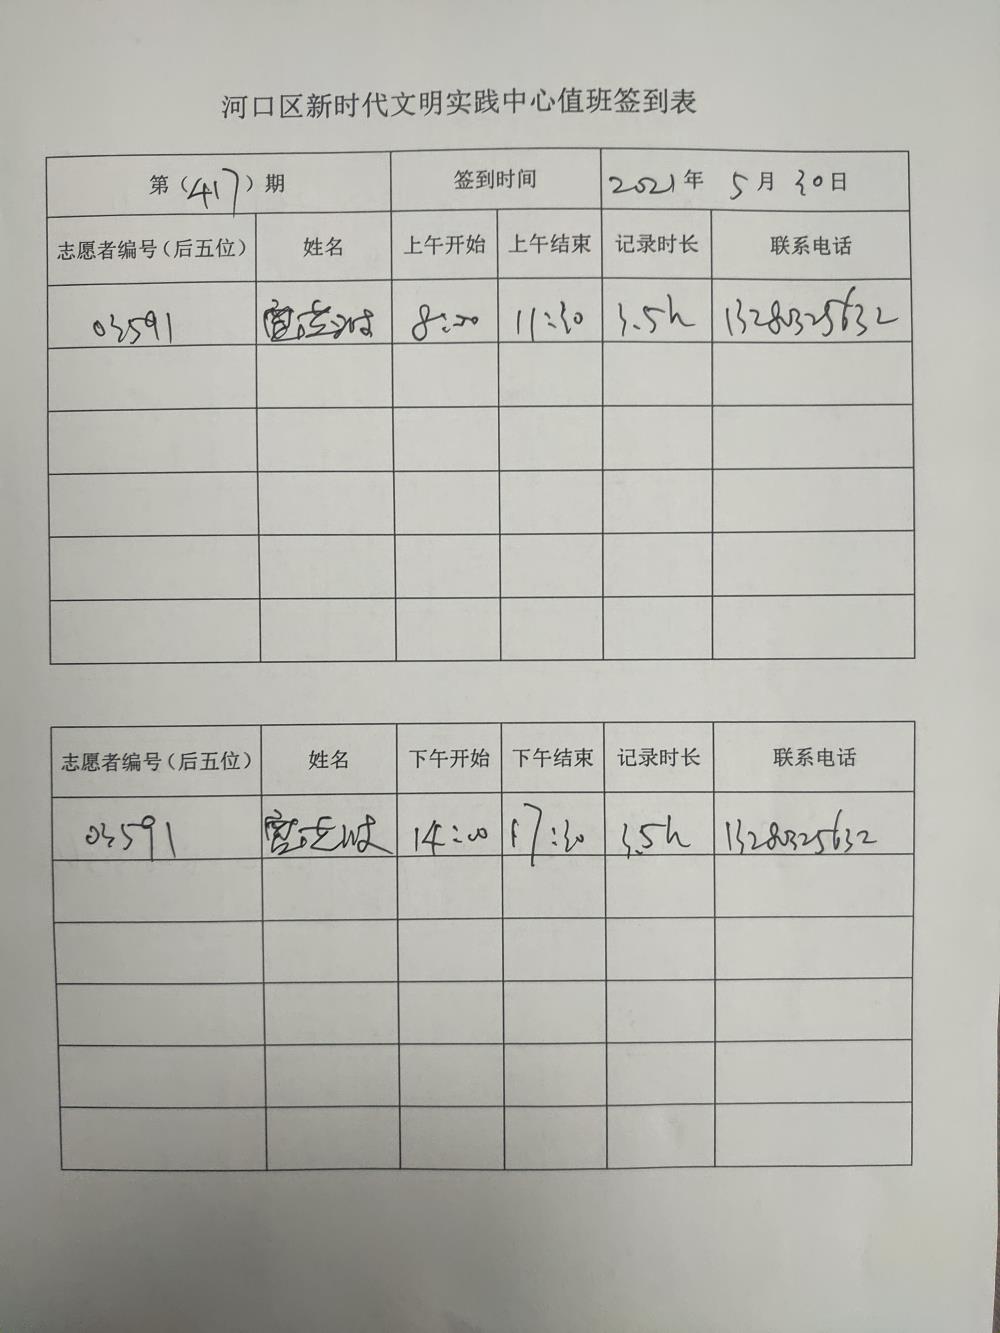 河口区新时代文明实践中心值班签到表
第（417）期 签到时间 2021年 5月 30日
志愿者编号（后五位） 姓名 上午开始 上午结束 记录时长 联系电话
03591 8:00 11:30 3.5h 13280325632
志愿者编号（后五位） 姓名 下午开始 下午结束 记录时长 联系电话
03591 14:00 17:30 3.5h 13280325632